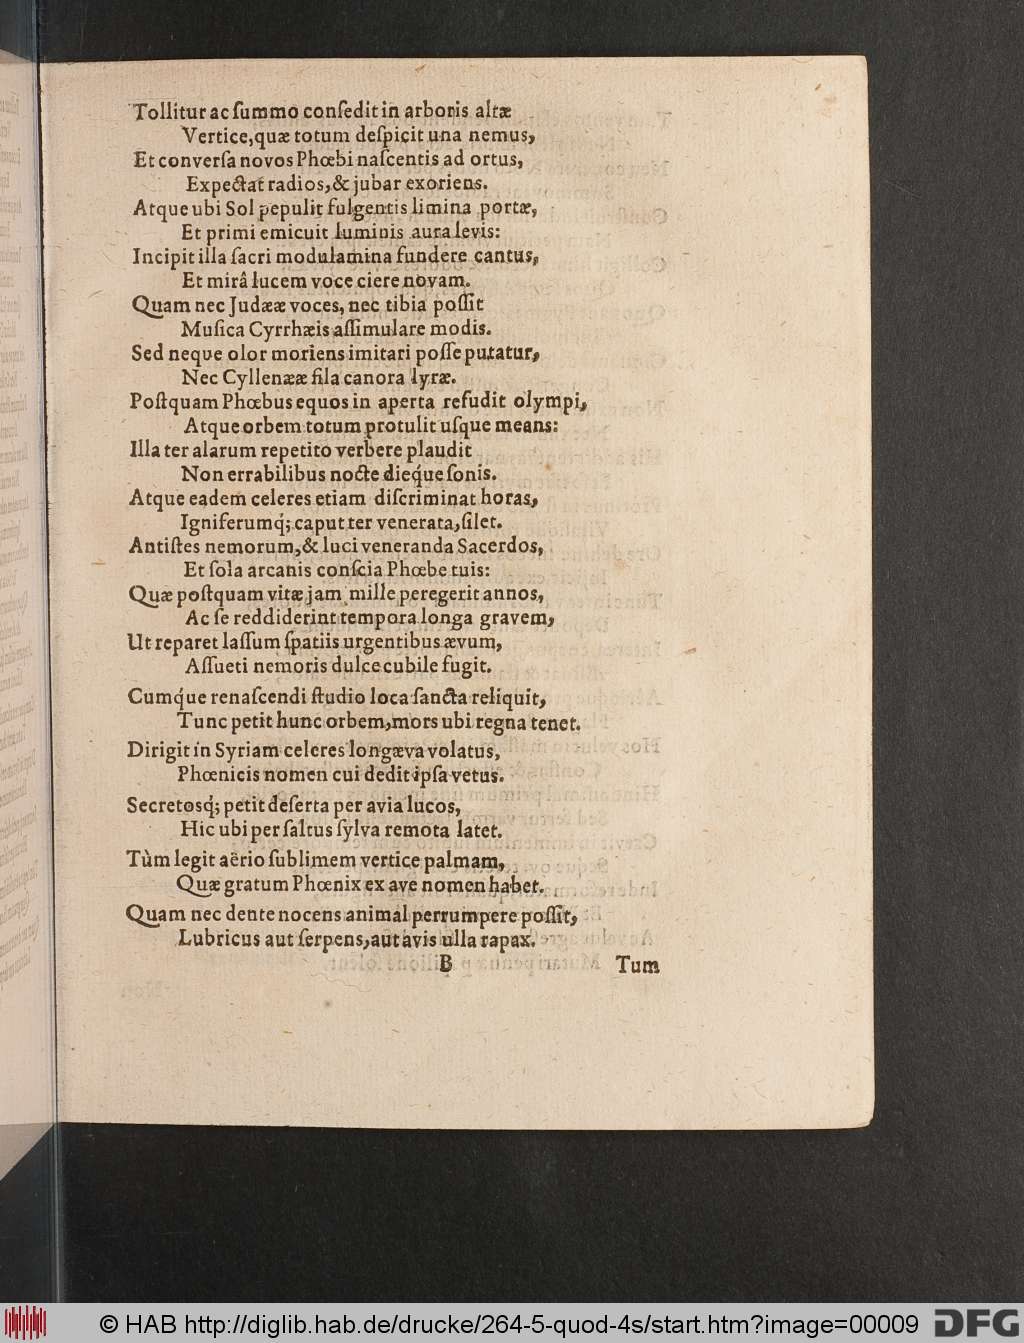 Tollitur ac ſummo conſedit in arboris altæ
Vertice, quæ totum deſpicit una nemus,
Et converſa novos Phœbi naſcentis ad ortus,
Expectat radios, & jubar exoriens.
Atque ubi Sol pepulit fulgentis limina portæ,
Et primi emicuit luminis aura levis:
Incipit illa ſacri modulamina fundere cantus,
Et mirâ lucem voce ciere novam.
Quam nec Judææ voces, nec tibia poſſit
Muſica Cyrrhæis aſſimulare modis.
Sed neque olor moriens imitari poſſe putatur,
Nec Cyllenææ fila canora lyræ.
Poſtquam Phœbus equos in aperta refudit olympi,
Atque orbem totum protulit uſque means:
Illa ter alarum repetito verbere plaudit
Non errabilibus nocte dieq́ue ſonis.
Atque eadem celeres etiam diſcriminat horas,
Igniferumq́; caput ter venerata, ſilet.
Antiſtes nemorum, & luci veneranda Sacerdos,
Et ſola arcanis conſcia Phœbe tuis:
Quæ poſtquam vitæ jam mille peregerit annos,
Ac ſe reddiderint tempora longa gravem,
Ut reparet laſſum ſpatiis urgentibus ævum,
Aſſueti nemoris dulce cubile fugit.
Cumq́ue renaſcendi ſtudio loca ſancta reliquit,
Tunc petit hunc orbem, mors ubi regna tenet.
Dirigit in Syriam celeres longæva volatus,
Phœnicis nomen cui dedit ipſa vetus.
Secretosq́; petit deſerta per avia lucos,
Hic ubi per ſaltus ſylva remota latet.
Tùm legit aërio ſublimem vertice palmam,
Quæ gratum Phœnix ex ave nomen habet.
Quam nec dente nocens animal perrumpere poſſit,
Lubricus aut ſerpens, aut avis ulla rapax.
B Tum
© HAB http://diglib.hab.de/drucke/264-5-quod-4s/start.htm?image=00009
DFG